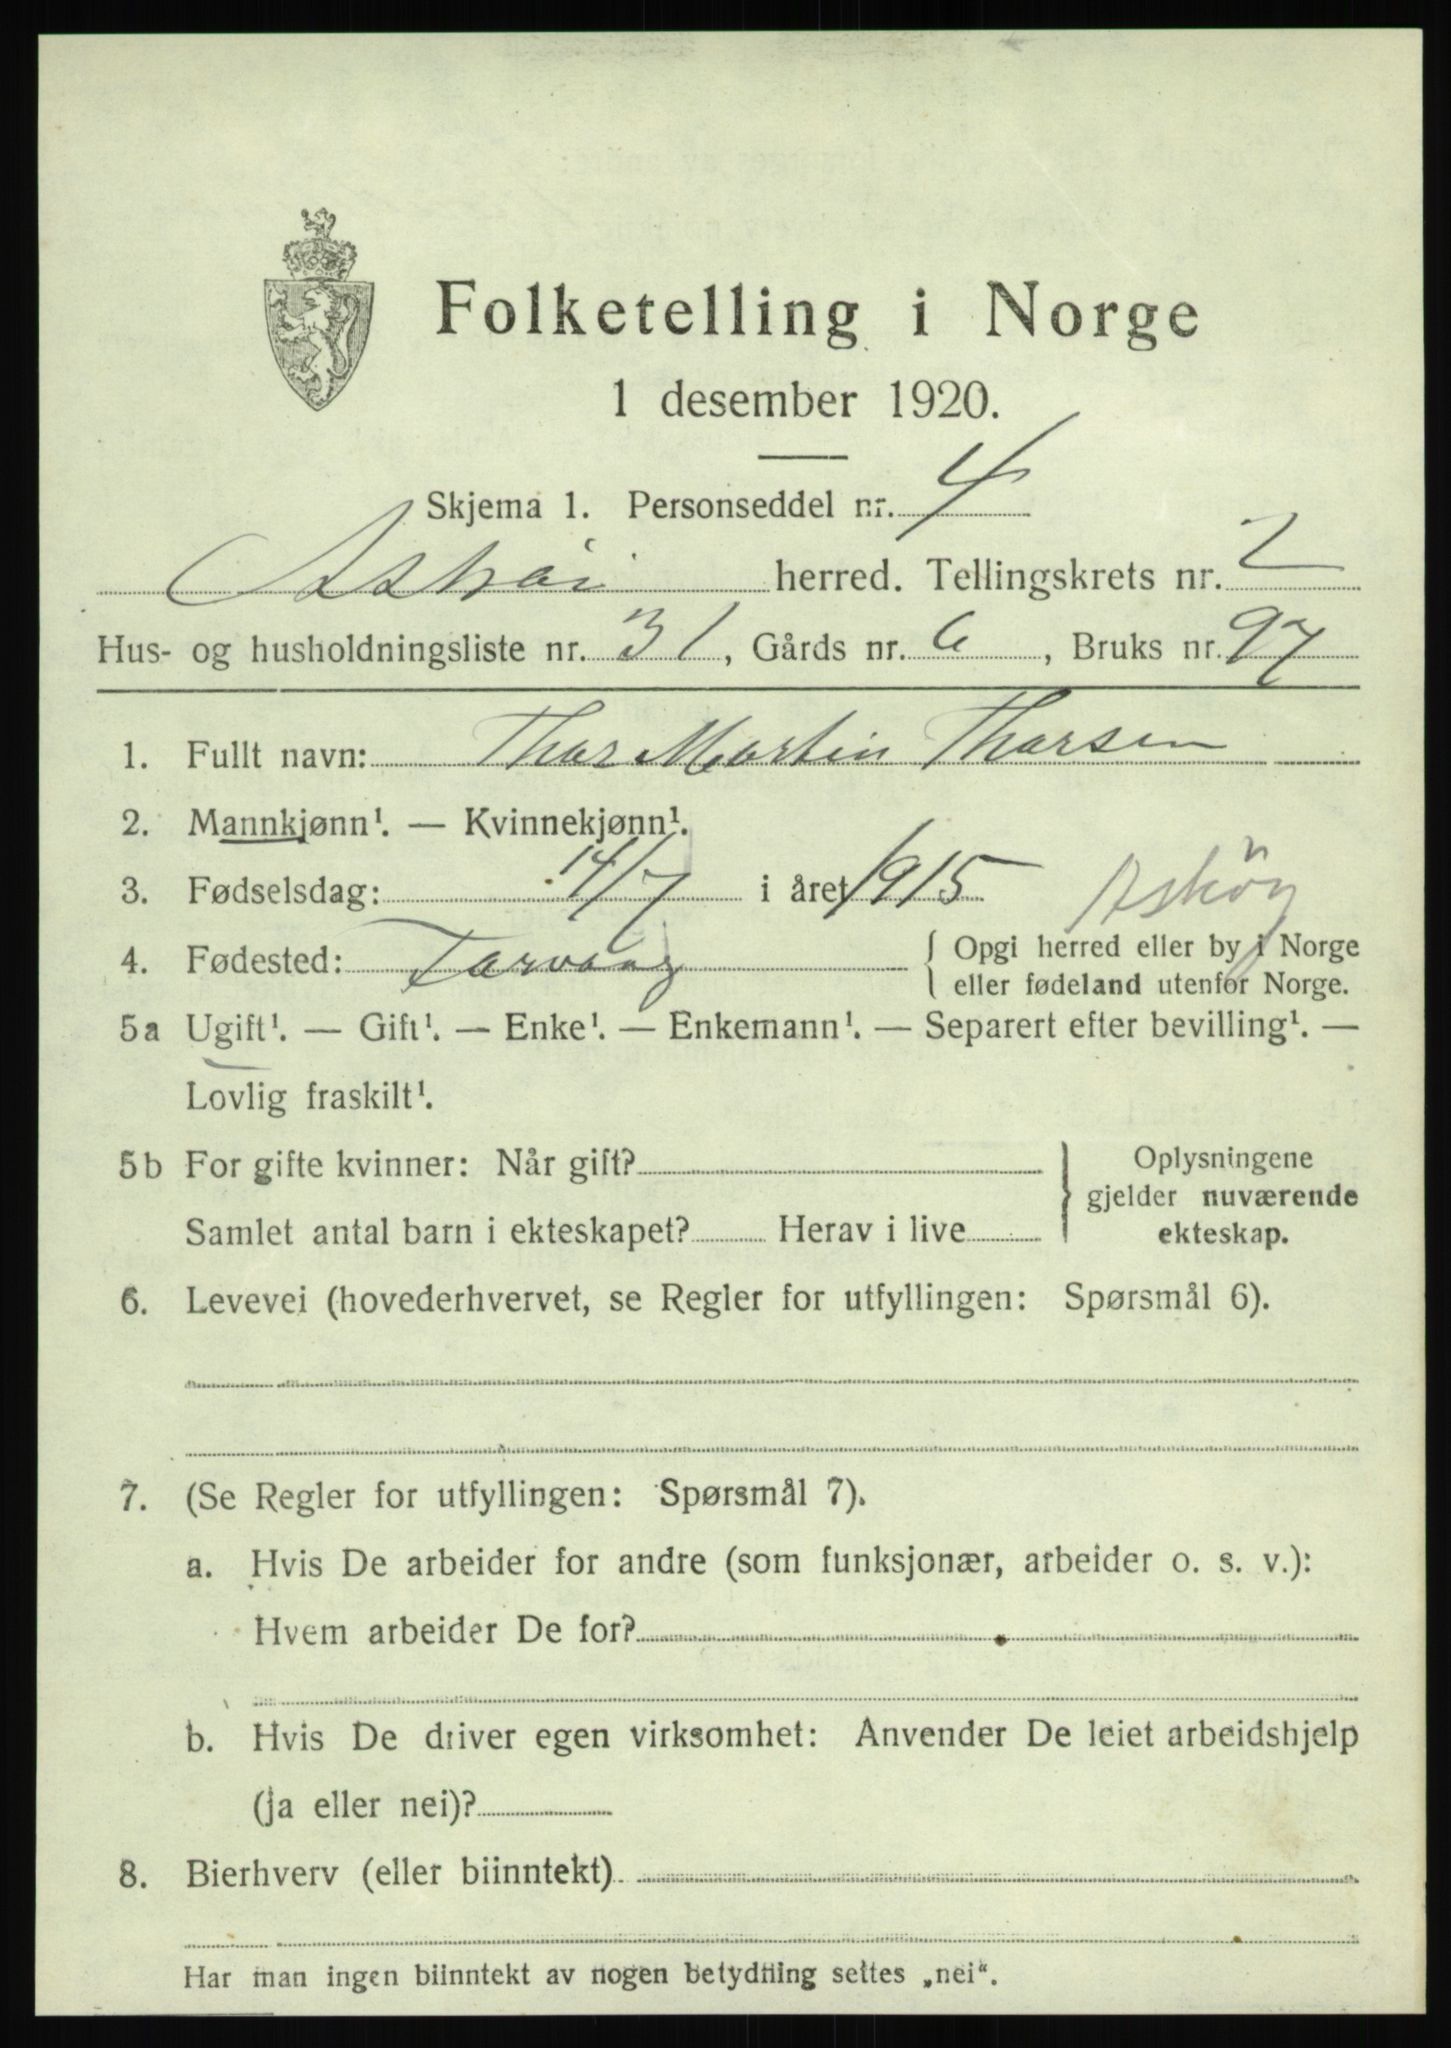 Folketelling i Norge
1 desember 1920.
Skjema 1. Personseddel nr. 4
Askøi herred. Tellingskrets nr. 2
Hus- og husholdningsliste nr. 31, Gårds nr. 6, Bruks nr. 97
1. Fullt navn: Thor Martin Thorsen
2. Mannkjønn¹. — Kvinnekjønn¹.
3. Fødselsdag: 14/7 i året 1915 Askøy
4. Fødested: { Opgi herred eller by i Norge
eller fødeland utenfor Norge.
5a Ugift¹. — Gift¹. — Enke¹. — Enkemann¹. — Separert efter bevilling¹. —
Lovlig fraskilt¹.
5b For gifte kvinner: Når gift? } Oplysningene
gjelder nuværende
Samlet antal barn i ekteskapet? Herav i live ekteskap.
6. Levevei (hovederhvervet, se Regler for utfyllingen: Spørsmål 6).
7. (Se Regler for utfyllingen: Spørsmål 7).
a. Hvis De arbeider for andre (som funksjonær, arbeider o. s. v.):
Hvem arbeider De for?
b. Hvis De driver egen virksomhet: Anvender De leiet arbeidshjelp
(ja eller nei)?
8. Bierhverv (eller biinntekt)
Har man ingen biinntekt av nogen betydning settes „nei“.